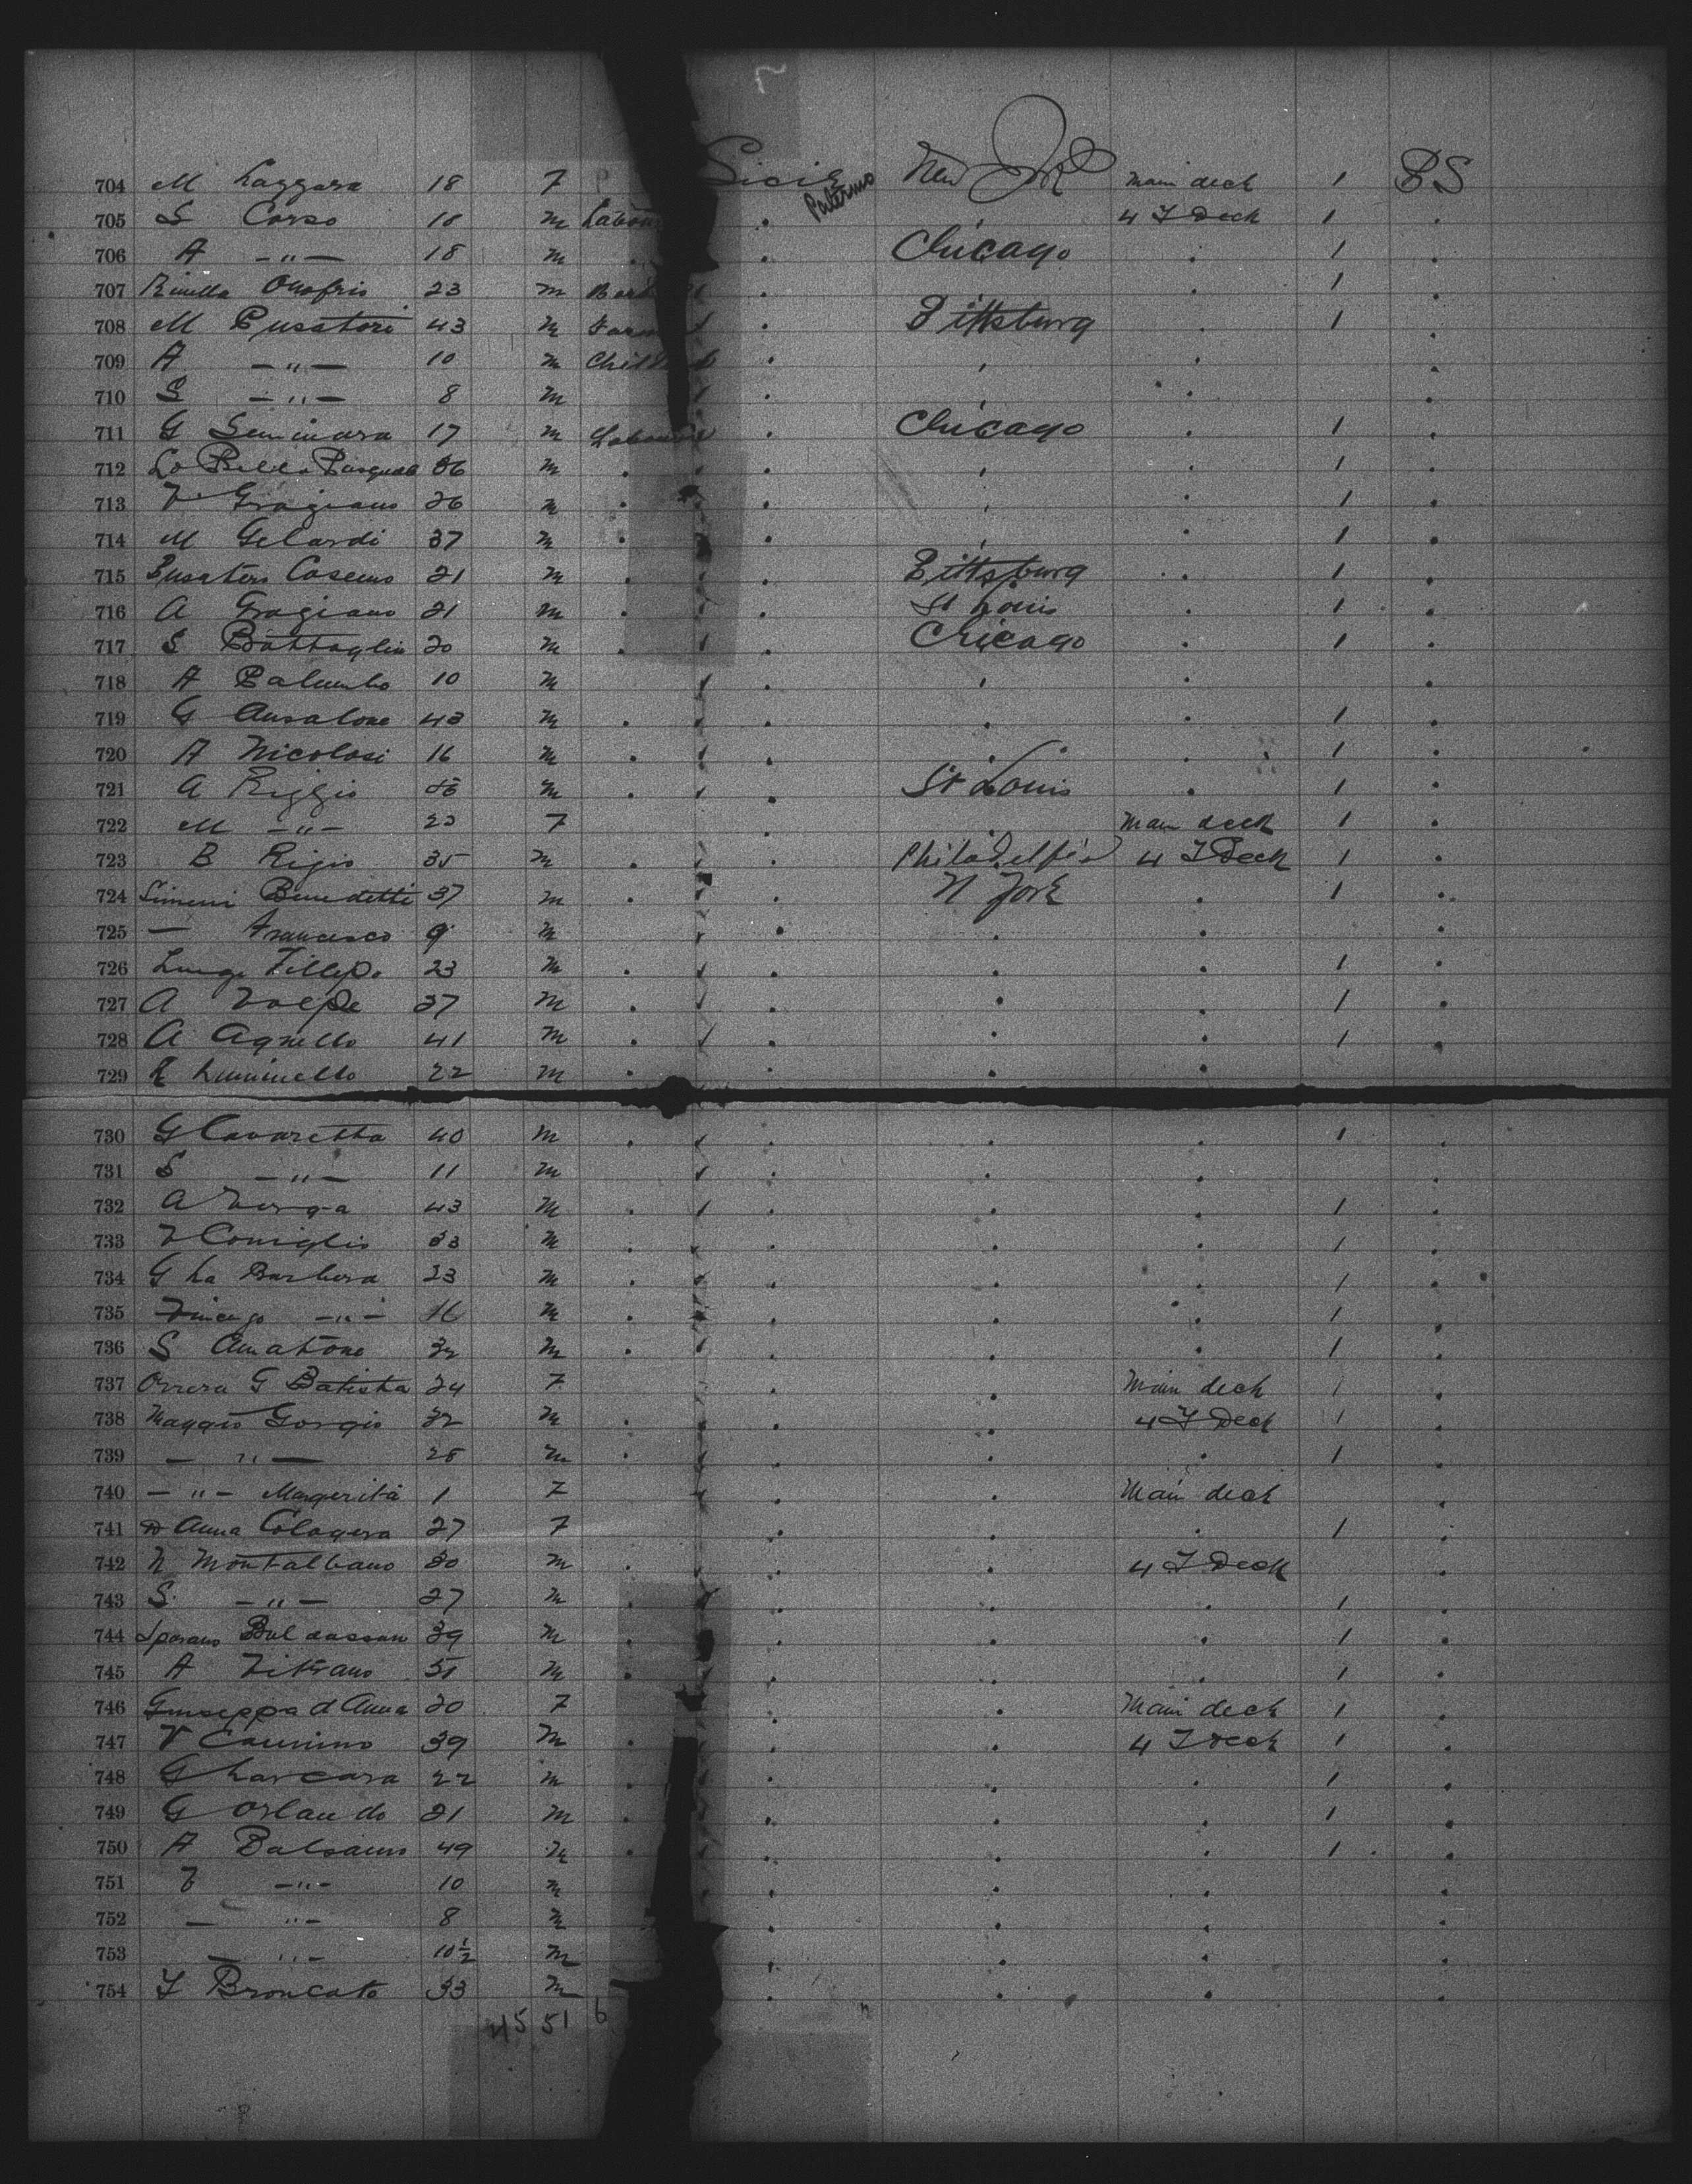 704 M Lazzara 18 F Sicily Palermo New York main deck 1 BS
705 S Corso 18 m Labour . 4 T Deck 1 .
706 A -"- 18 m . . Chicago . 1 .
707 Rinella Onofrio 23 m Barb . . 1 .
708 M Pusatori 43 m Farm . Pittsburg . 1 .
709 A -"- 10 m Child . . . .
710 S -"- 8 m . . .
711 G Seminara 17 m Labourer . Chicago . 1 .
712 Lo Bello Pasquale 36 m . . . . 1 .
713 V Graziano 26 m . . . . 1 .
714 M Gelardi 37 m . . . . 1 .
715 Busateri Cosemo 21 m . . Pittsburg . 1 .
716 A Graziano 21 m . . St Louis . 1 .
717 S Battaglia 20 m . . Chicago . 1 .
718 A Palumbo 10 m . . . .
719 G Ansalone 43 m . . . . 1 .
720 A Nicolosi 16 m . . . . 1 .
721 A Riggio m . . St Louis . 1 .
722 M -"- 22 F . . Main deck 1 .
723 B Rigio 35 m . . Philadelfia 4 T Deck 1 .
724 Simeni Benedetti 37 m . . N York . 1 .
725 — Francesco 9 m . . . .
726 Luigi Fillipo 23 m . . . . 1 .
727 A Volpe 37 m . . . . 1 .
728 A Agnello 41 m . . . . 1 .
729 R Luminello 22 m . . . .
730 G Cavaretta 40 m . . . . 1 .
731 S -"- 11 m . . . .
732 A Verga 43 m . . . . 1 .
733 V Coniglio 33 m . . . . 1 .
734 G La Barbera 23 m . . . . 1 .
735 Vincenzo -"- 16 m . . . . 1 .
736 S Amatone 32 m . . . . 1 .
737 Orrera G Batista 24 F . . Main deck 1 .
738 Maggio Gorgio 32 m . . . 4 T Deck 1 .
739 — "— 28 m . . . . 1 .
740 -"- Margerita 1 F . . Main deck .
741 D Anna Calogera 27 F . . . 1 .
742 N Montalbano 30 m . . . 4 T Deck .
743 S. -"- 27 m . . . . 1 .
744 Sparano Baldassare 39 m . . . . 1 .
745 A Vitrano 51 m . . . . 1 .
746 Giuseppa d Anna 20 F . . Main deck 1 .
747 V Cannino 39 m . . . 4 T Deck 1 .
748 G Larcara 22 m . . . . 1 .
749 G Orlando 21 m . . . . 1 .
750 A Balsamo 49 m . . . . 1 .
751 V -"- 10 m . . . .
752 — "- 8 m . . . .
753 — "- 10½ m . . .
754 F Broncato 33 m . . . .
45 51 6